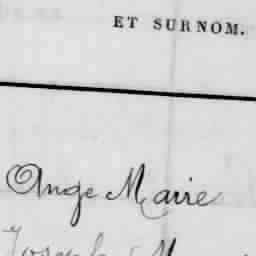 ET SURNOM.
Ange Marie
Joseph